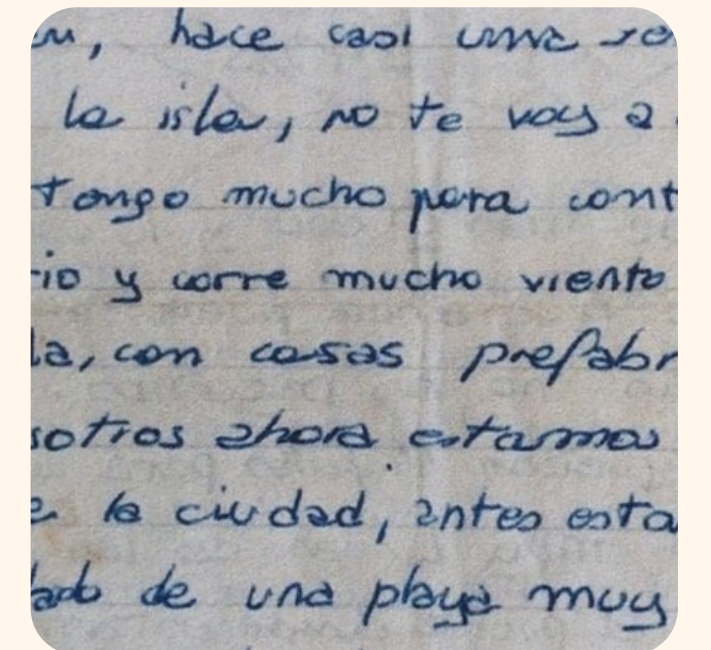 hace casi una
la isla, no te voy a
Tengo mucho para cont
rio y corre mucho viento
la, con casas prefabr
sotros ahora estamos
e la ciudad, antes esta
lado de una playa muy